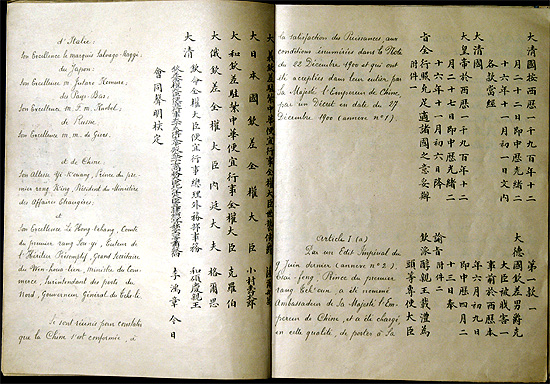 d'Italie:
Son Excellence le marquis Salvago-Raggi;
du Japon:
Son Excellence M. Jutaro Komura;
des Pays-Bas:
Son Excellence M. F. M. Knobel;
de Russie
Son Excellence M. M. de Giers.
et de Chine:
Son Altesse Yi-Kouang, Prince du premier
rang King, Président du Ministère
des Affaires Étrangères;
et
Son Excellence Li Hong-tchang, Comte
du premier rang Sou-yi, Tuteur de
l'Héritier Présomptif, Grand Secrétaire
du Wen-houa tien, Ministre du Commerce,
Surintendant des ports du
Nord, Gouverneur Général du Tche-li
Se sont réunis pour constater
que la Chine s'est conformée, à
大日本國欽差全權大臣
小村壽太郎
大和欽差駐紮中華便宜行事全權大臣
克羅伯
大俄欽差全權大臣內廷大夫
格爾思
大清
欽命全權大臣便宜行事總理外務部事務
和碩慶親王
李鴻章
今日
會同聲明核定
la satisfaction des Puissances, aux
conditions énumérées dans la Note
du 22 Décembre 1900 et qui ont
été acceptées dans leur entier par
Sa Majesté l'Empereur de Chine,
par un Décret en date du 27
Décembre 1900 (annexe nº 1).
大清國按西歷一千九百年十二
月二十二日即中歷光緒二
十六年十一月初一日文內
各款當經
大清國
大皇帝於西歷一千九百年十二
月二十七日即中歷光緒二
十六年十一月初六日降
旨全行照允足適諸國之意妥辦
附件一
Article I (a)
Par un Edit Impérial du
9 Juin dernier (annexe nº 2),
Tsai-feng, Prince du premier
rang Tch'ouen, a été nommé
Ambassadeur de Sa Majesté l'Empereur
de Chine, et a été chargé,
en cette qualité, de porter à Sa
第一款一
大德國欽差男爵克
大臣被戕害一
事前於西歷本
年六月初九日
即中歷四月二
十三日奉
諭旨附件二
欽派醇親王載灃為
頭等專使大臣